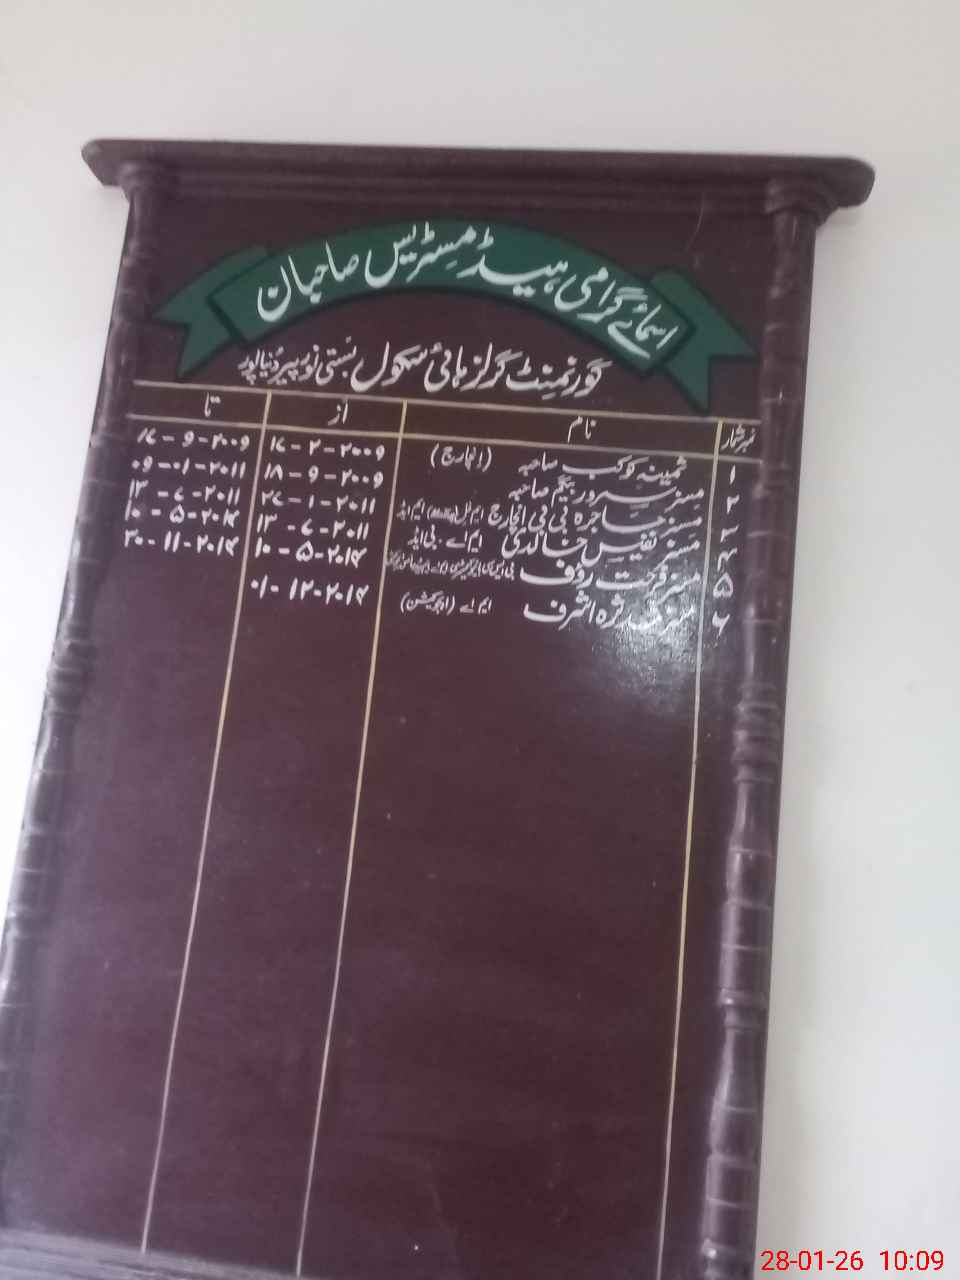 اسمائے گرامی ہیڈ مسٹریس صاحبان
گورنمنٹ گرلز ہائی سکول بستی نور پیر دُنیاپور
نمبر شمار نام از تا
۱ ثمینہ کوکب صاحبہ (انچارج) ۱۷-۲-۲۰۰۹ ۱۷-۹-۲۰۰۹
۲ مسز سرور بیگم صاحبہ ۱۸-۹-۲۰۰۹ ۰۹-۰۱-۲۰۱۱
۳ مسز ہاجرہ بی بی انچارج ۲۷-۱-۲۰۱۱ ۱۳-۷-۲۰۱۱
۴ مسز نفیس خالدی ایم اے - بی ایڈ ۱۳-۷-۲۰۱۱ ۱۰-۵-۲۰۱۴
۵ مسز فرحت رؤف ۱۰-۵-۲۰۱۴ ۳۰-۱۱-۲۰۱۴
۶ مسز اشرف ایم اے (ایجوکیشن) ۰۱-۱۲-۲۰۱۴
28-01-26 10:09